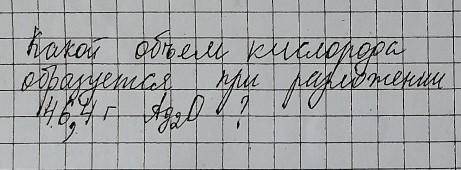 Какой объем кислорода
образуется при разложении
46,4 г Ag₂O ?